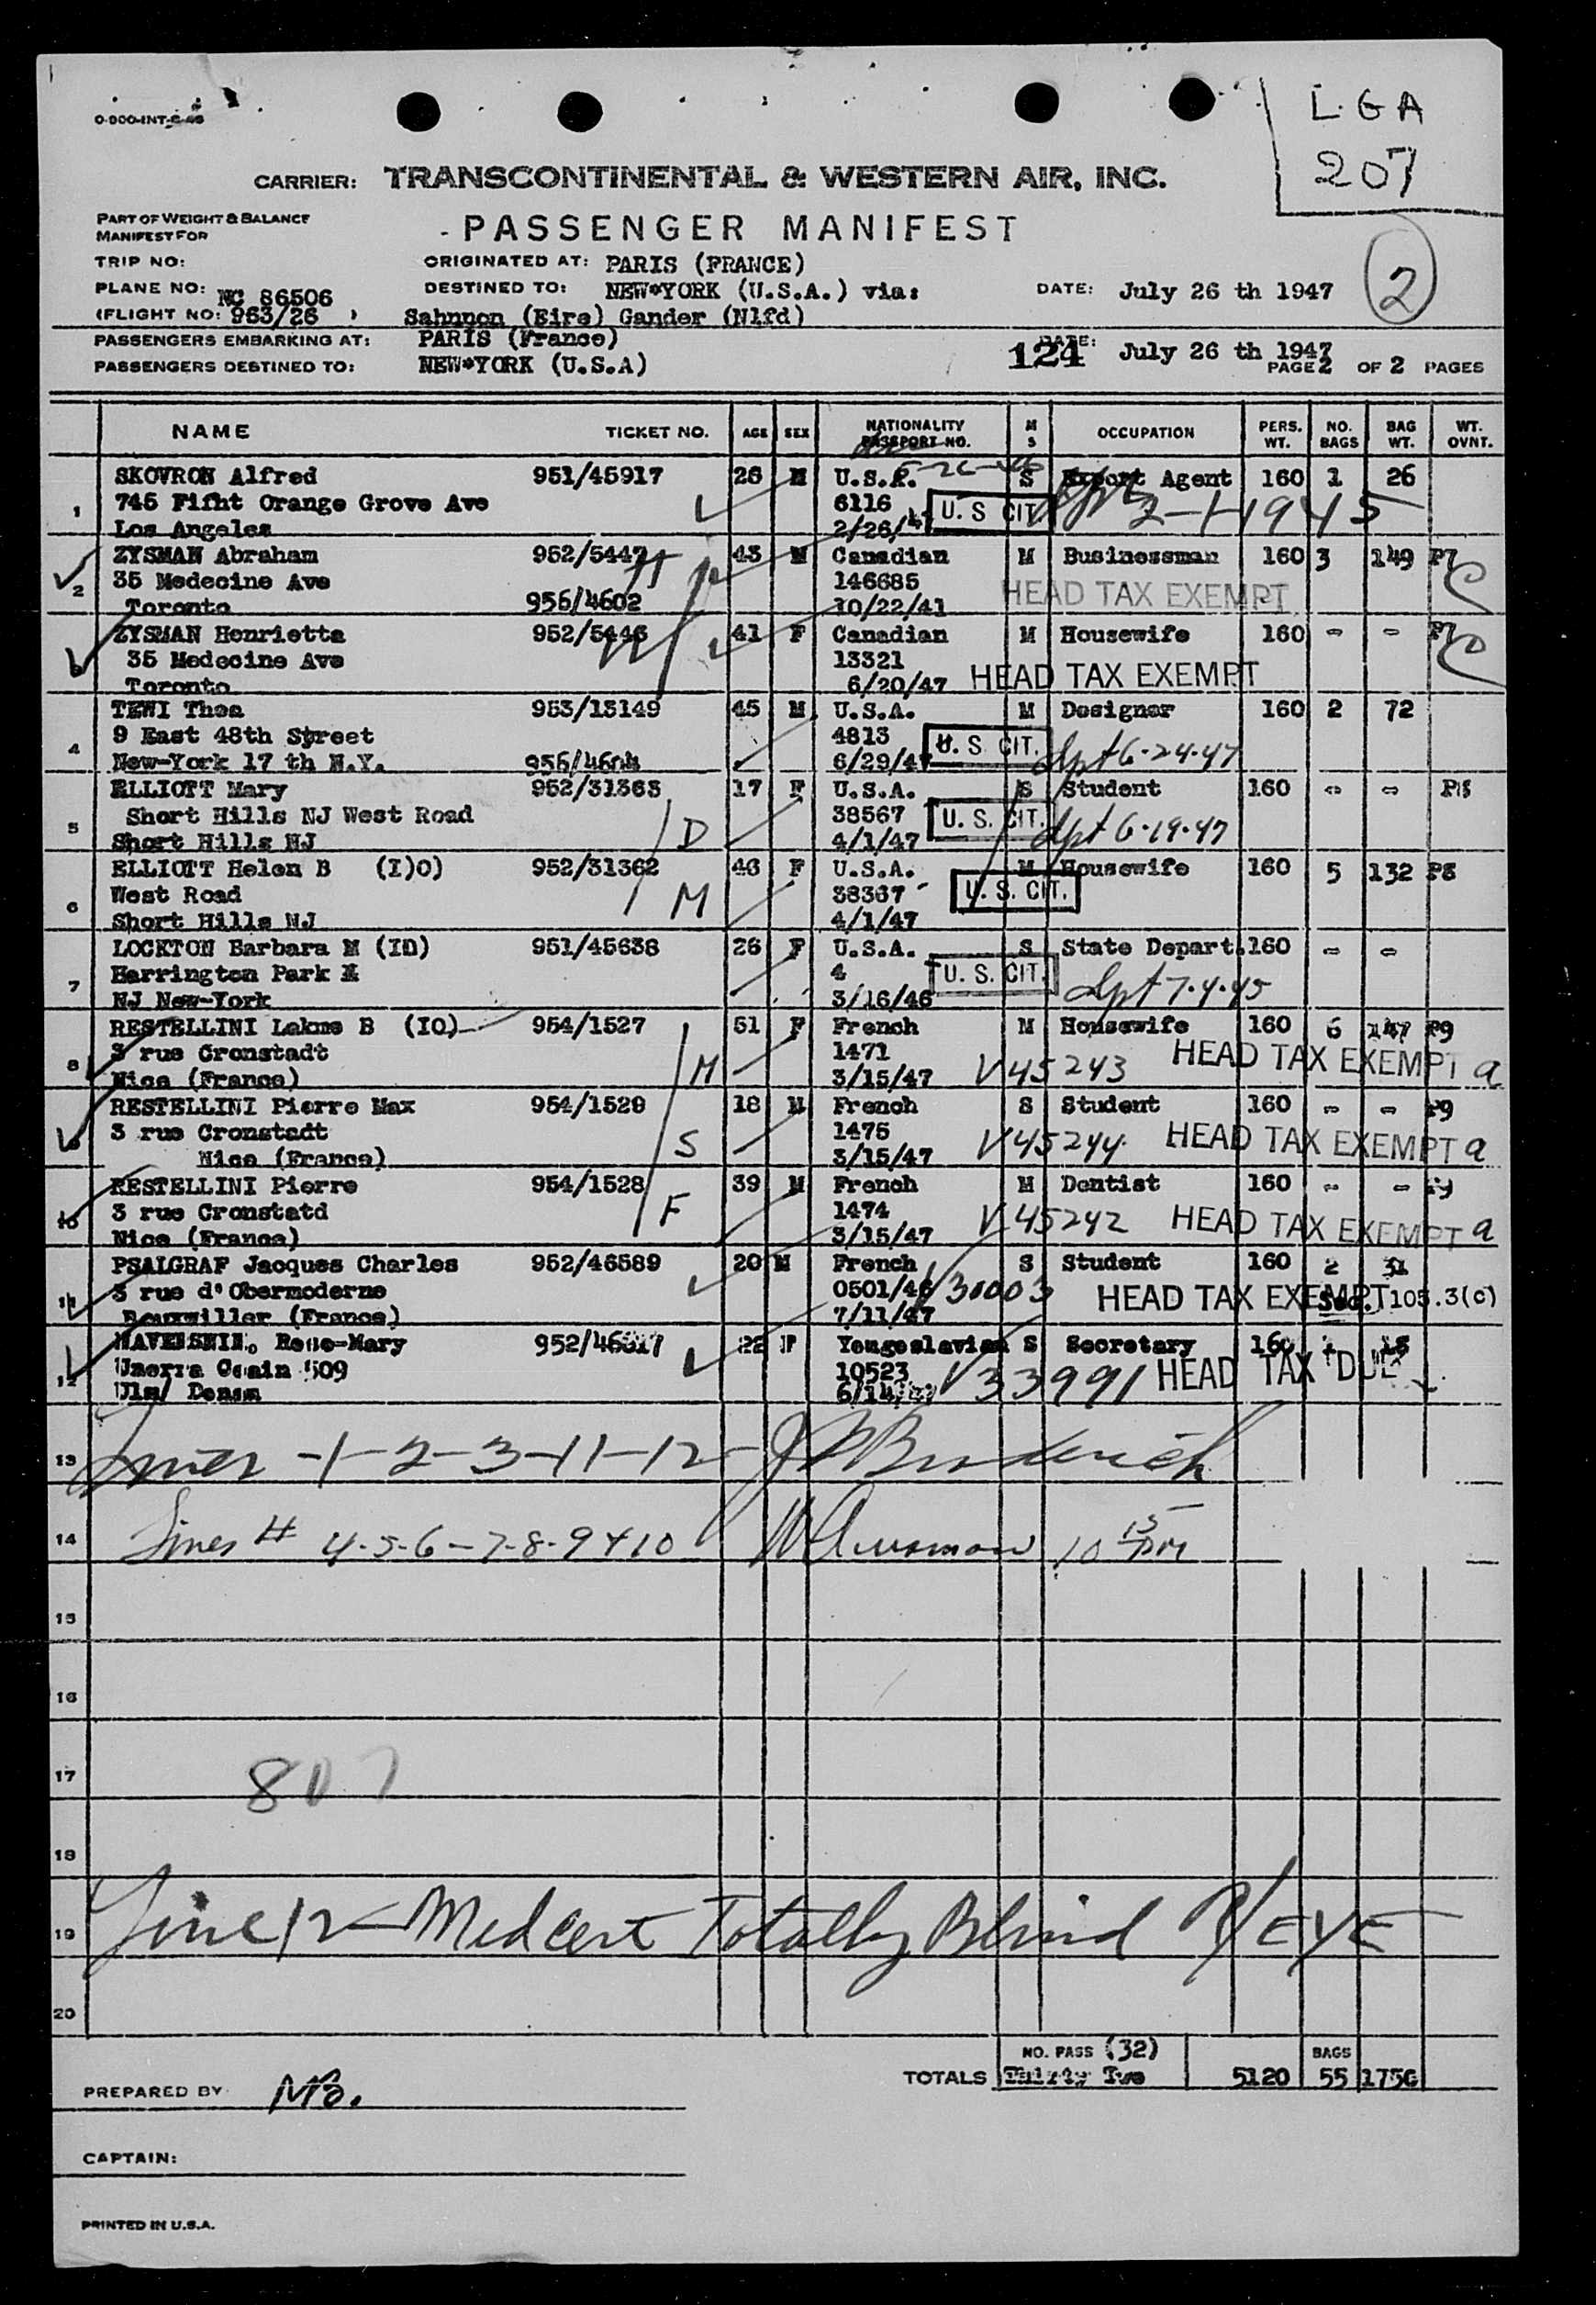 L.GA
207
CARRIER: TRANSCONTINENTAL & WESTERN AIR, INC.
PART OF WEIGHT & BALANCE
MANIFEST FOR
- PASSENGER MANIFEST
TRIP NO: ORIGINATED AT: PARIS (FRANCE)
PLANE NO: NC 86506 DESTINED TO: NEW*YORK (U.S.A.) via: DATE: July 26 th 1947 2
(FLIGHT NO: 963/26 ) Sahnnon (Eire) Gander (Nlfd)
PASSENGERS EMBARKING AT: PARIS (France) 124 DATE: July 26 th 1947
PASSENGERS DESTINED TO: NEW*YORK (U.S.A) PAGE 2 OF 2 PAGES
NAME TICKET NO. AGE SEX NATIONALITY PASSPORT NO. M S OCCUPATION PERS. WT. NO. BAGS BAG WT. WT. OVNT.
SKOVRON Alfred 951/45917 26 M U.S. S Export Agent 160 1 26
1 745 Fifht Orange Grove Ave 6116 U.S CIT. 2-1-1945
Los Angeles 2/26/
ZYSMAN Abraham 952/5447 43 M Canadian M Businessman 160 3 149 P7
2 35 Medecine Ave 146685 HEAD TAX EXEMPT
Toronto 956/4602 10/22/41
ZYSMAN Henrietta 952/5446 41 F Canadian M Housewife 160 - - P7
3 35 Medecine Ave 13321
Toronto 6/20/47 HEAD TAX EXEMPT
TEWI Thea 953/13149 45 M U.S.A. M Designer 160 2 72
4 9 East 48th Street 4813 U.S CIT. Dpt 6-24-47
New-York 17 th N.Y. 956/4604 6/29/4
ELLIOTT Mary 952/31363 17 F U.S.A. S Student 160 - - P8
5 Short Hills NJ West Road 38567 U.S. CIT. Dpt 6-19-47
Short Hills NJ D 4/1/47
ELLIOTT Helen B (I)O) 952/31362 46 F U.S.A. M Housewife 160 5 132 P8
6 West Road M 38367 U.S. CIT.
Short Hills NJ 4/1/47
LOCKTON Barbara M (ID) 951/45638 26 F U.S.A. S State Depart. 160 - -
7 Harrington Park M 4 U.S. CIT. Dpt 7-4-45
NJ New-York 3/16/46
RESTELLINI Lakme B (IO) 954/1527 51 F French M Housewife 160 6 147 P9
8 3 rue Cronstadt 1471 HEAD TAX EXEMPT a
Nice (France) M 3/15/47 V45243
RESTELLINI Pierre Max 954/1529 18 M French S Student 160 - - P9
9 3 rue Cronstadt S 1475 V45244 HEAD TAX EXEMPT a
Nice (France) 3/15/47
RESTELLINI Pierre 954/1528 39 M French M Dentist 160 - - P9
10 3 rue Cronstatd F 1474 V45242 HEAD TAX EXEMPT a
Nice (France) 3/15/47
PSALGRAF Jacques Charles 952/46589 20 M French S Student 160 2 31
11 3 rue d'Obermoderne 0501/46 V30003 HEAD TAX EXEMPT Sec. 105.3(c)
Bouxwiller (France) 7/11/47
Rene-Mary 952/46 22 F Yougoslavian S Secretary 160
12 509 10523 V33991 HEAD TAX DUE
Ulm/ 6/14/
13 Lines -1-2-3-11-12- J Broderick
14 Lines # 4-5-6-7-8-9+10 10 15 PM
15
16
17 807
18
19 Line 12 - Med cert Totally Blind R/EYE
20
NO. PASS (32) BAGS
TOTALS Thirty Two 5120 55 1756
PREPARED BY
CAPTAIN:
PRINTED IN U.S.A.